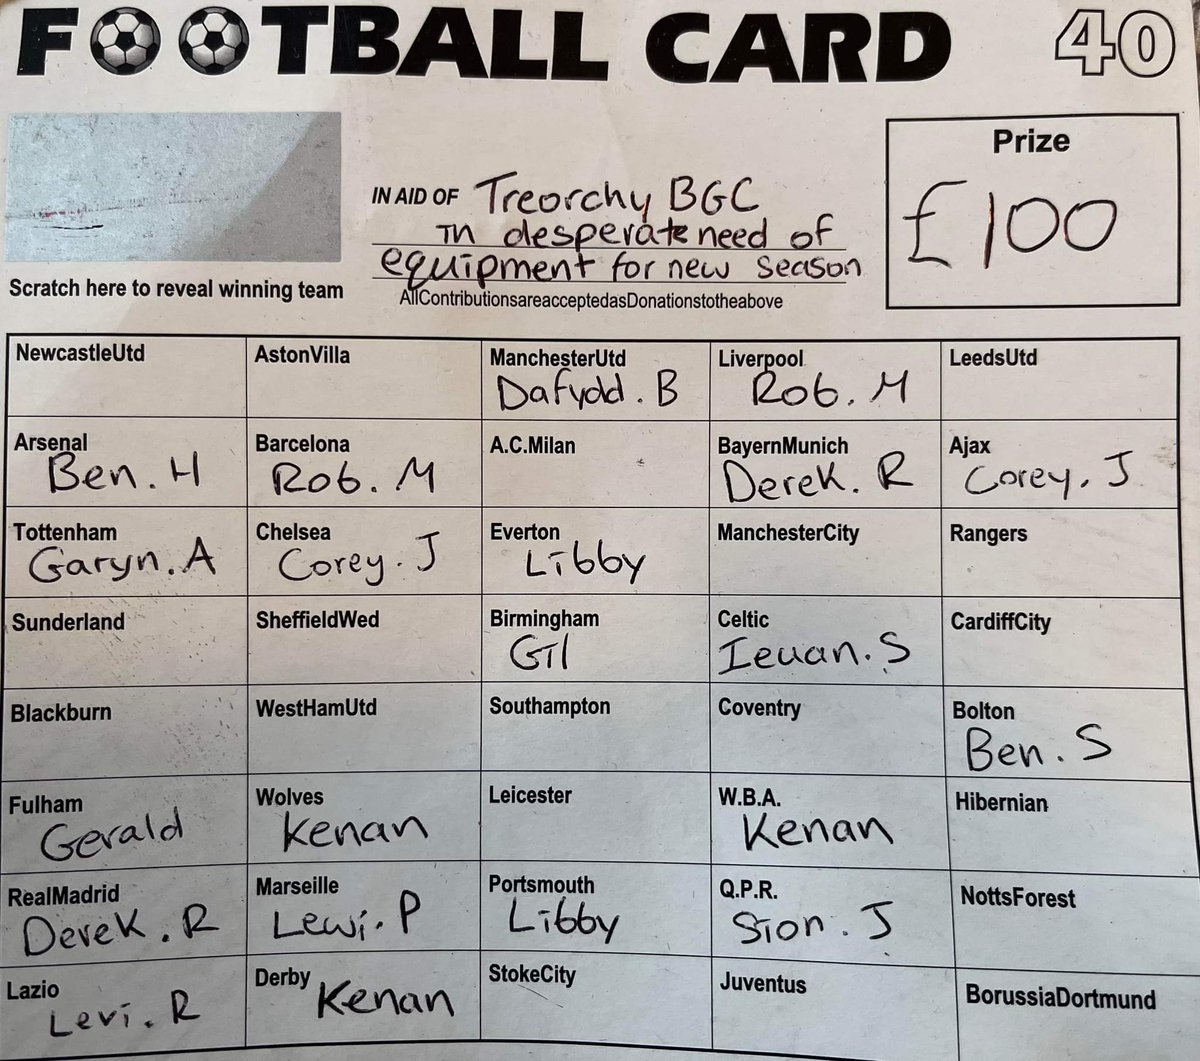 FOOTBALL CARD 40
Prize
£100
IN AID OF Treorchy BGC
In desperate need of
equipment for new season
AllContributionsareacceptedasDonationstotheabove
Scratch here to reveal winning team
NewcastleUtd AstonVilla ManchesterUtd Liverpool LeedsUtd
Dafydd. B Rob. M
Arsenal Barcelona A.C.Milan BayernMunich Ajax
Ben. H Rob. M Derek. R Corey. J
Tottenham Chelsea Everton ManchesterCity Rangers
Garyn. A Corey. J Libby
Sunderland SheffieldWed Birmingham Celtic CardiffCity
Gil Ieuan. S
Blackburn WestHamUtd Southampton Coventry Bolton
Ben. S
Fulham Wolves Leicester W.B.A. Hibernian
Gerald Kenan Kenan
RealMadrid Marseille Portsmouth Q.P.R. NottsForest
Derek. R Lewi. P Libby Sion. J
Lazio Derby StokeCity Juventus BorussiaDortmund
Levi. R Kenan